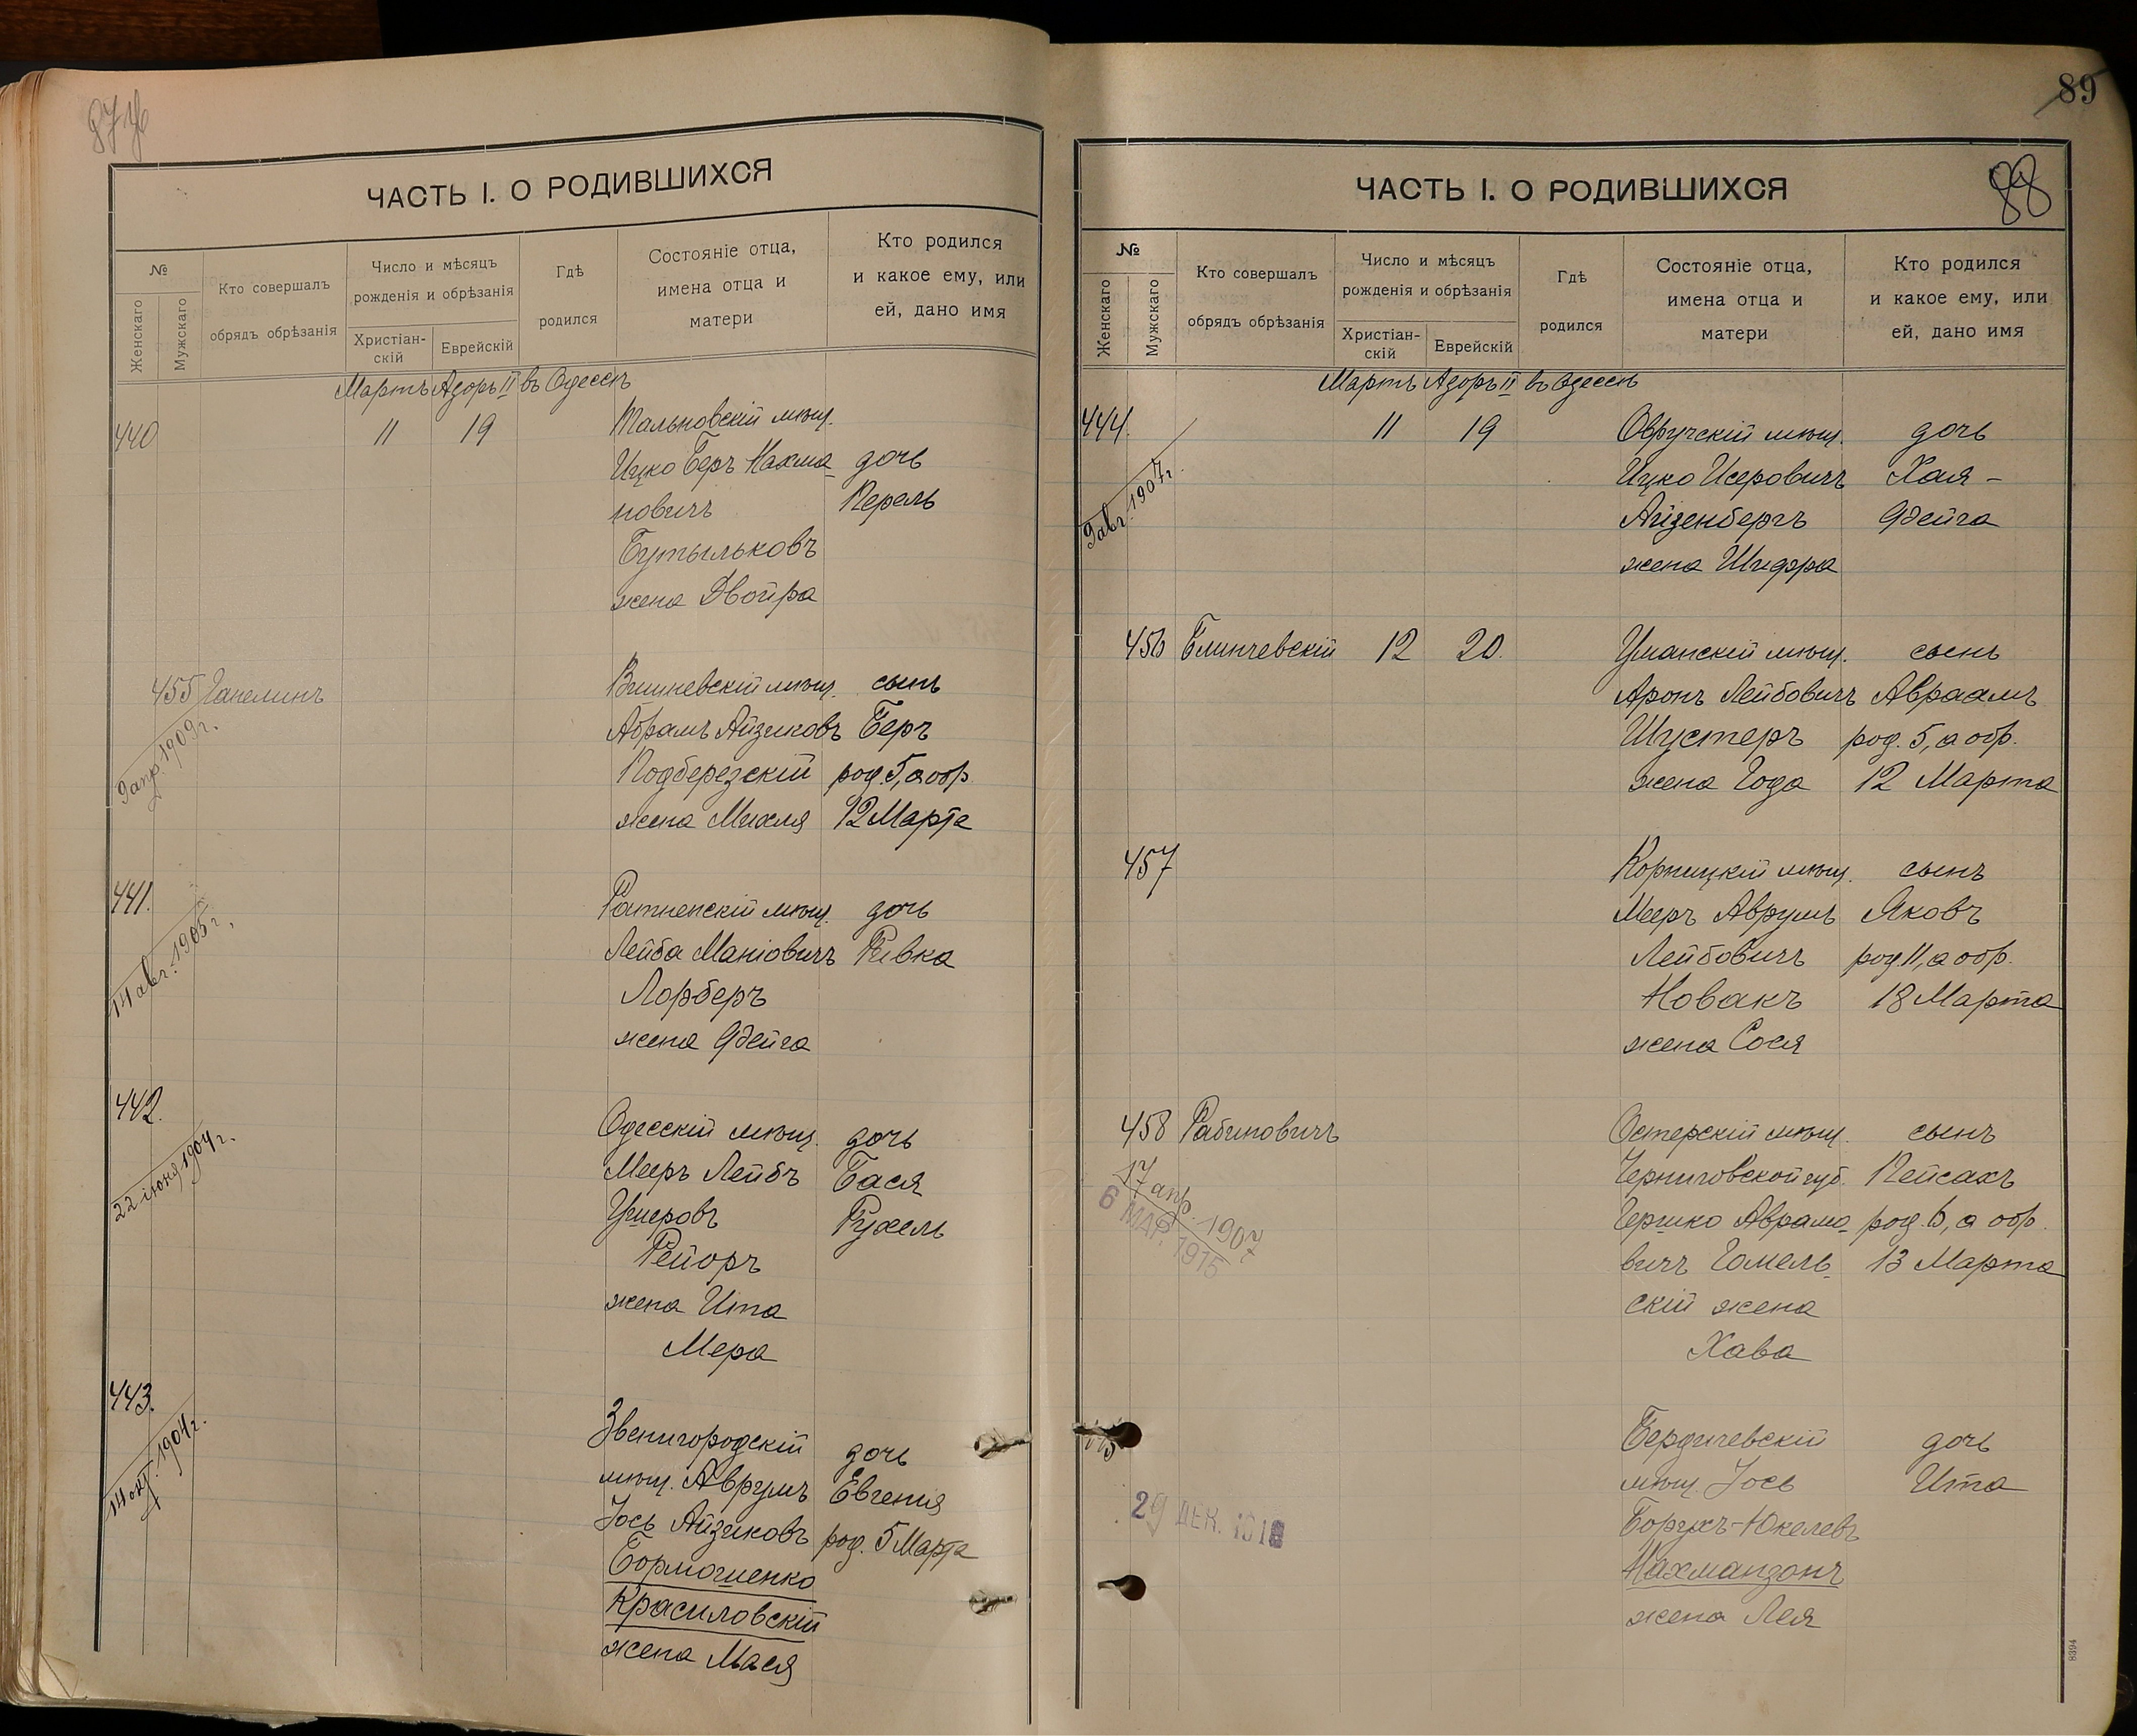 ЧАСТЬ I. О РОДИВШИХСЯ
№
Женскаго
Мужскаго
Кто совершалъ
обрядъ обрѣзанія
Число и мѣсяцъ
рожденія и обрѣзанія
Христіан-
скій
Еврейскій
Гдѣ
родился
Состояніе отца,
имена отца и
матери
Кто родился
и какое ему, или
ей, дано имя
Мартъ Адоръ II въ Одессѣ
440 11 19 Тальновскій мѣщ.
Ицко Беръ Нахма- дочь
новичъ Перель
Бутыльковъ
жена Двойра
455 Гапелинъ Вишневскій мѣщ. сынъ
9 апр. 1909 г. Абрамъ Айзиковъ Беръ
Подберезскій род. 5, а обр.
жена Михля 12 Марта
441. Ратненскій мѣщ. дочь
14 авг. 1905 г. Лейба Маніовичъ Ривка
Лорберъ
жена Эдейга
442. Одесскій мѣщ. дочь
22 іюня 1904 г. Мееръ Лейбъ Бася
Ушеровъ Рухель
Рейоръ
жена Ита
Мера
443. Звенигородскій дочь
14 1904 г. мѣщ. Аврумъ Евгенія
Іось Айзиковъ род. 5 Марта
Бормошенко
Красиловскій
жена Мася
89
88
ЧАСТЬ I. О РОДИВШИХСЯ
№
Женскаго
Мужскаго
Кто совершалъ
обрядъ обрѣзанія
Число и мѣсяцъ
рожденія и обрѣзанія
Христіан-
скій
Еврейскій
Гдѣ
родился
Состояніе отца,
имена отца и
матери
Кто родился
и какое ему, или
ей, дано имя
Мартъ Адоръ II въ Одессѣ
444. 11 19 Овручскій мѣщ. дочь
9 авг. 1907 г. Ицко Исеровичъ Хая-
Айзенбергъ Эдейга
жена Шифра
456 Блинчевскій 12 20. Уманскій мѣщ. сынъ
Аронъ Лейбовичъ Авраамъ
Шустеръ род. 5, а обр.
жена Года 12 Марта
457 Корницкій мѣщ. сынъ
Мееръ Аврумъ Яковъ
Лейбовичъ род. 11, а обр.
Новакъ 18 Марта
жена Сося
458 Рабиновичъ Остерскій мѣщ. сынъ
17 апр. 1907 Черниговской губ. Пейсахъ
6 МАР. 1915 Гершко Аврамо- род. 6, а обр.
вичъ Гомель- 13 Марта
скій жена
Хава
Бердичевскій дочь
мѣщ. Іось Ита
29 ДЕК. Борухъ-Юкелевъ
Нахманзонъ
жена Лея
8394